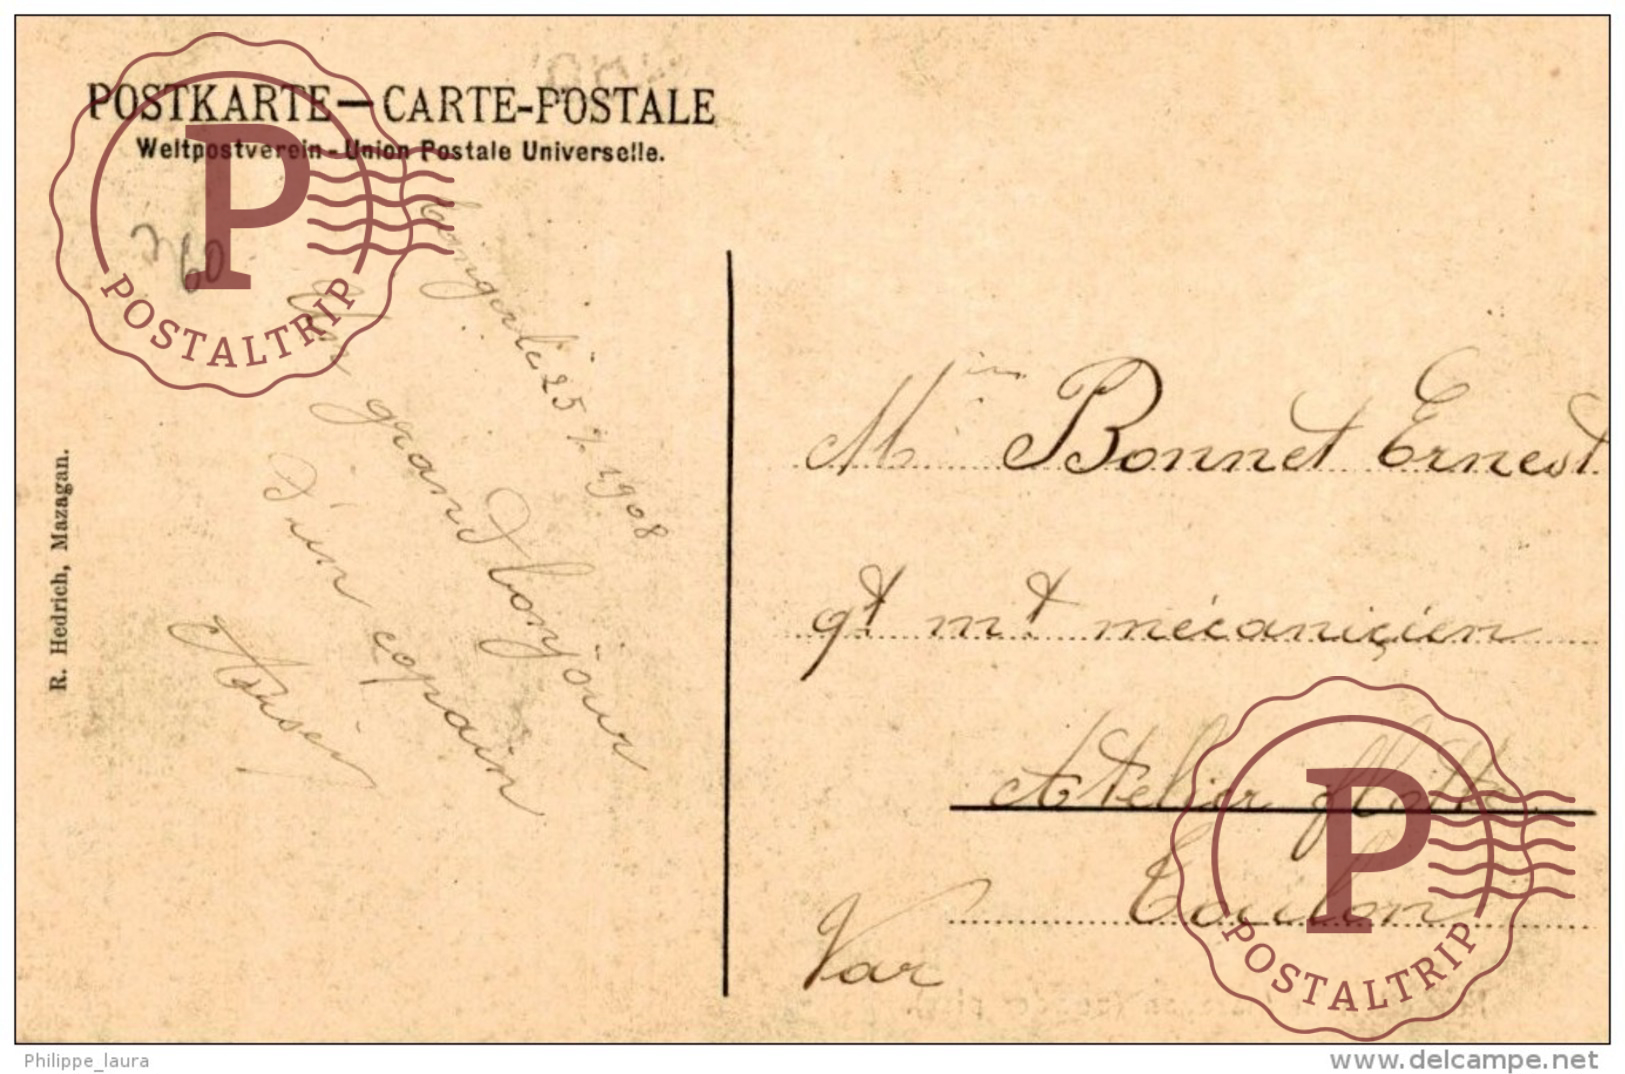 POSTKARTE — CARTE-POSTALE
Weltpostverein - Union Postale Universelle.
R. Hedrich, Mazagan.
260
le 25 7. 1908
grand bonjour
d'un copain
Mr Bonnet Ernest
qt mt mécanicien
Atelier flotte
Toulon
Var
POSTALTRIP
POSTALTRIP
Philippe_laura
www.delcampe.net